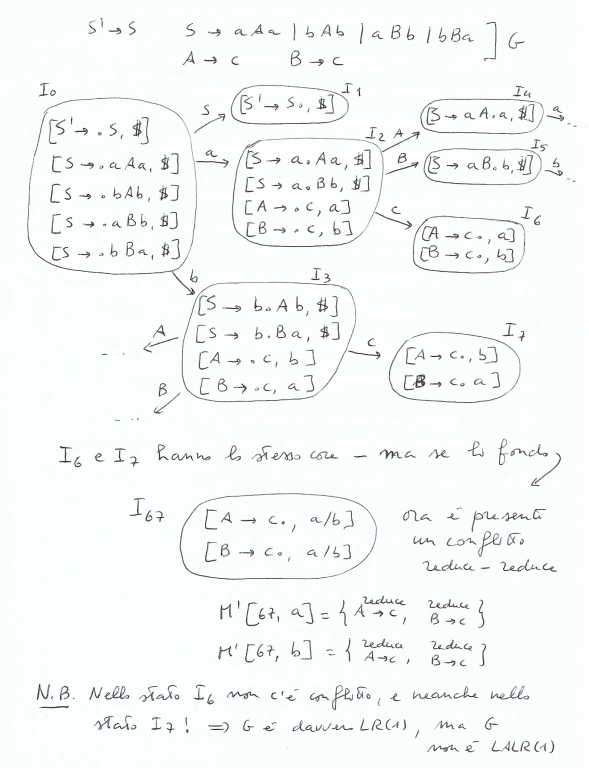 S' → S   S → aAa | bAb | aBb | bBa ] G
A → c   B → c
I0
[S' → .S, $]
[S → .aAa, $]
[S → .bAb, $]
[S → .aBb, $]
[S → .bBa, $]
S
I1
[S' → S., $]
a
I2
[S → a.Aa, $]
[S → a.Bb, $]
[A → .c, a]
[B → .c, b]
A
I4
[S → aA.a, $]
a
...
B
I5
[S → aB.b, $]
b
...
c
I6
[A → c., a]
[B → c., b]
b
I3
[S → b.Ab, $]
[S → b.Ba, $]
[A → .c, b]
[B → .c, a]
A
...
B
...
c
I7
[A → c., b]
[B → c. a]
I6 e I7 hanno lo stesso core - ma se li fondo
I67
[A → c., a/b]
[B → c., a/b]
ora è presente
un conflitto
reduce - reduce
M'[67, a] = { reduce A→c, reduce B→c }
M'[67, b] = { reduce A→c, reduce B→c }
N.B. Nello stato I6 non c'è conflitto, e neanche nello
stato I7! ⇒ G è davvero LR(1), ma G
non è LALR(1)